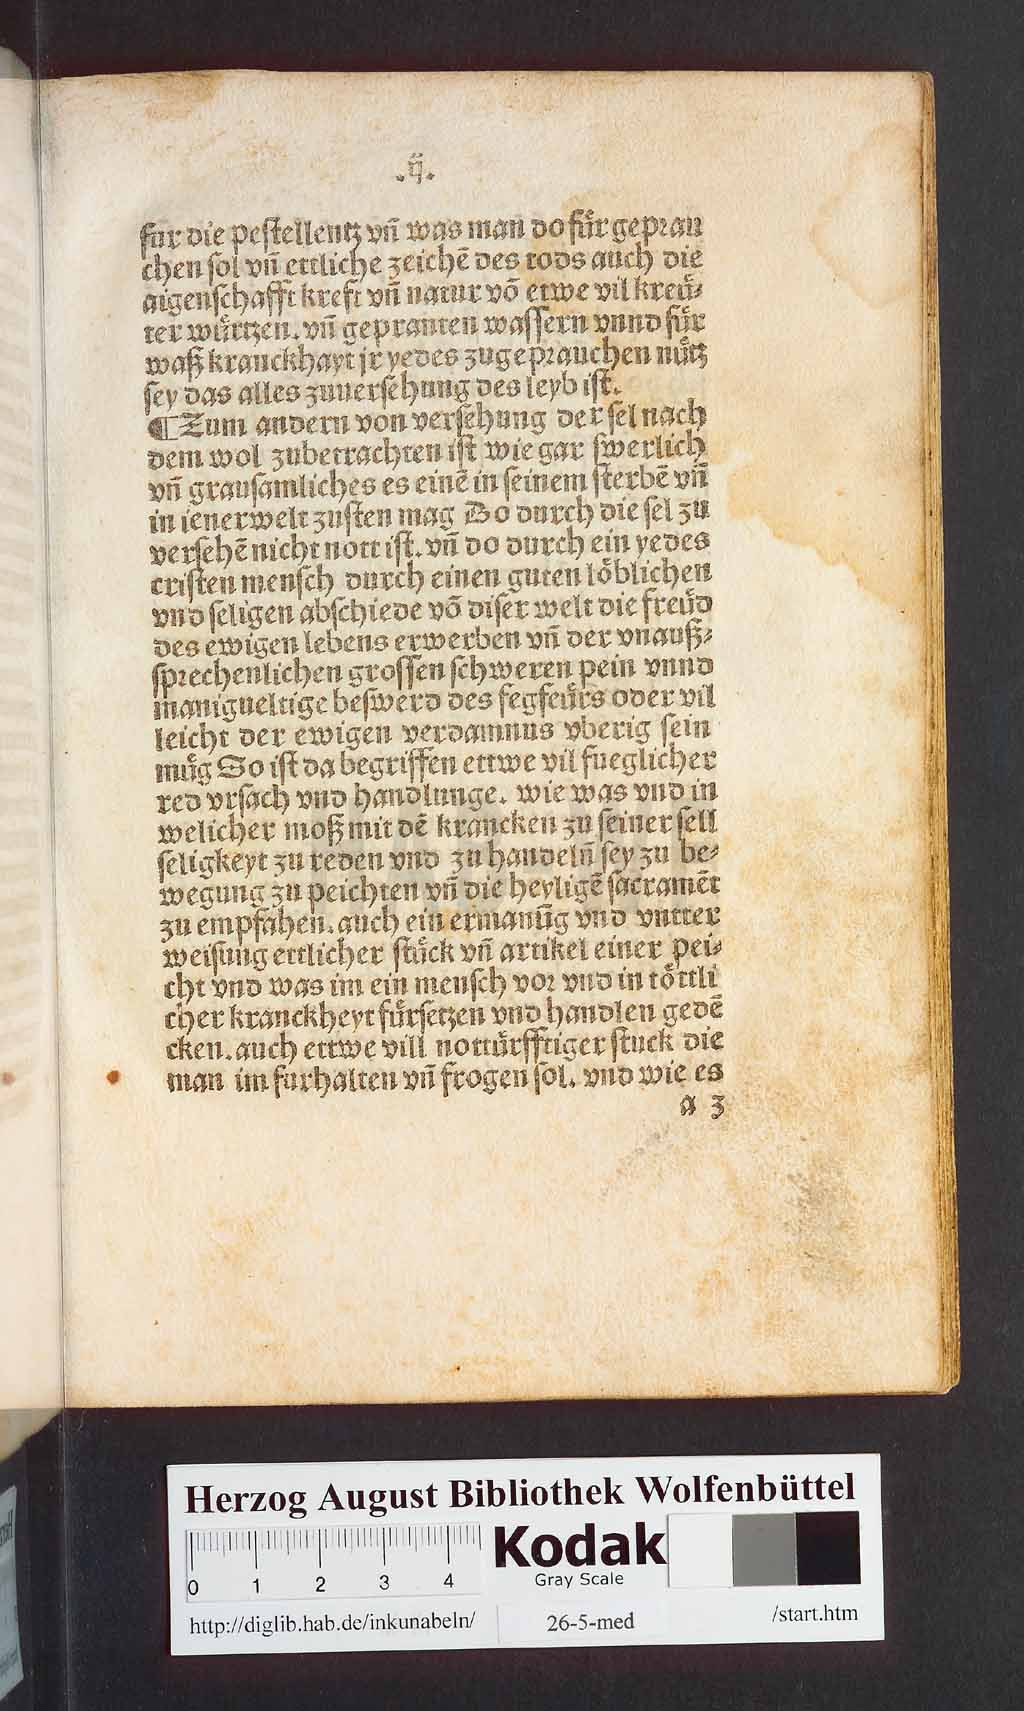 .ij.
fur die pestellentz vñ was man do fúr geprau
chen sol vñ ettliche zeichẽ des tods auch die
aigenschafft kreft vñ natur võ etwe vil kreú⸗
ter wúrtzen. vñ gepranten wassern vnnd fúr
waß kranckhayt jr yedes zugeprauchen nútz
sey das alles zuuersehung des leyb ist.
¶Zum andern von versehung der sel nach
dem wol zubetrachten ist wie gar swerlich
vñ grausamliches es einẽ in seinem sterbẽ vñ
in iener welt zusten mag So durch die sel zu
versehẽ nicht nott ist. vñ do durch ein yedes
cristen mensch durch einen guten lőblichen
vnd seligen abschiede võ diser welt die freúd
des ewigen lebens erwerben vñ der vnauß⸗
sprechenlichen grossen schweren pein vnnd
manigueltige beswerd des fegfeúrs oder vil
leicht der ewigen verdamnus vberig sein
múg So ist da begriffen ettwe vil fueglicher
red vrsach vnd handlunge. wie was vnd in
welicher moß mit dẽ krancken zu seiner sell
seligkeyt zu reden vnd zu handelñ sey zu be⸗
wegung zu peichten vñ die heyligẽ sacramẽt
zu empfahen. auch ein ermanũg vnd vntter
weisung ettlicher stúck vñ artikel einer pei⸗
cht vnd was im ein mensch vor vnd in tőttli
cher kranckheyt fúrsetzen vnd handlen gedẽ
cken. auch ettwe vill nottúrfftiger stuck die
man im furhalten vñ frogen sol. vnd wie es
a 3
Herzog August Bibliothek Wolfenbüttel
0 1 2 3 4
Kodak
Gray Scale
http://diglib.hab.de/inkunabeln/
26-5-med
/start.htm